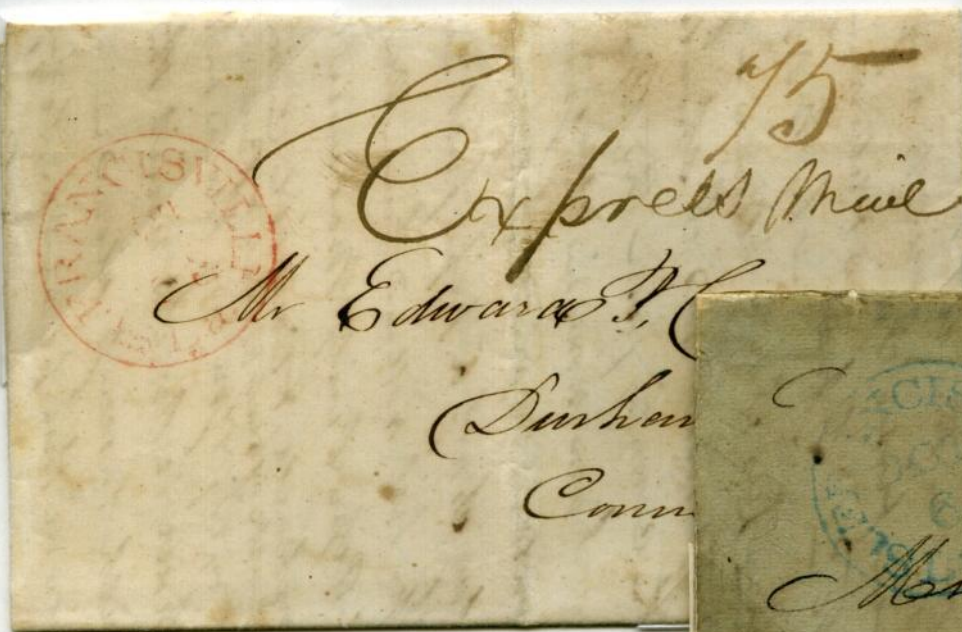 75
Express Mail
FRANCISVILLE
Mr Edward P. C
Durham
Conn
CIS
OC
6
Mr